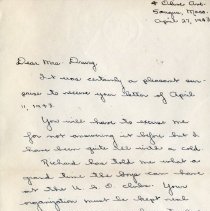 4 Olive Ave.
Saugus, Mass.
April 27, 1943
Dear Mrs.
It was certainly a pleasant sur-
prise to receive your letter of April
11, 1943.
You will have to excuse me
for not answering it before but I
have been quite ill with a cold.
Richard has told me what a
grand time the boys can have
at the U.S.O. clubs. Your
organization must be kept real